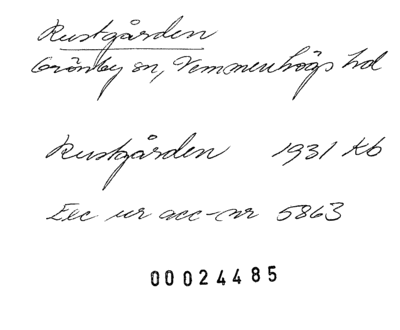 Rustgården
Grönby sn, Vemmenhögs hd
Rustgården 1931 Kb
Exc ur acc-nr 5863
00024485